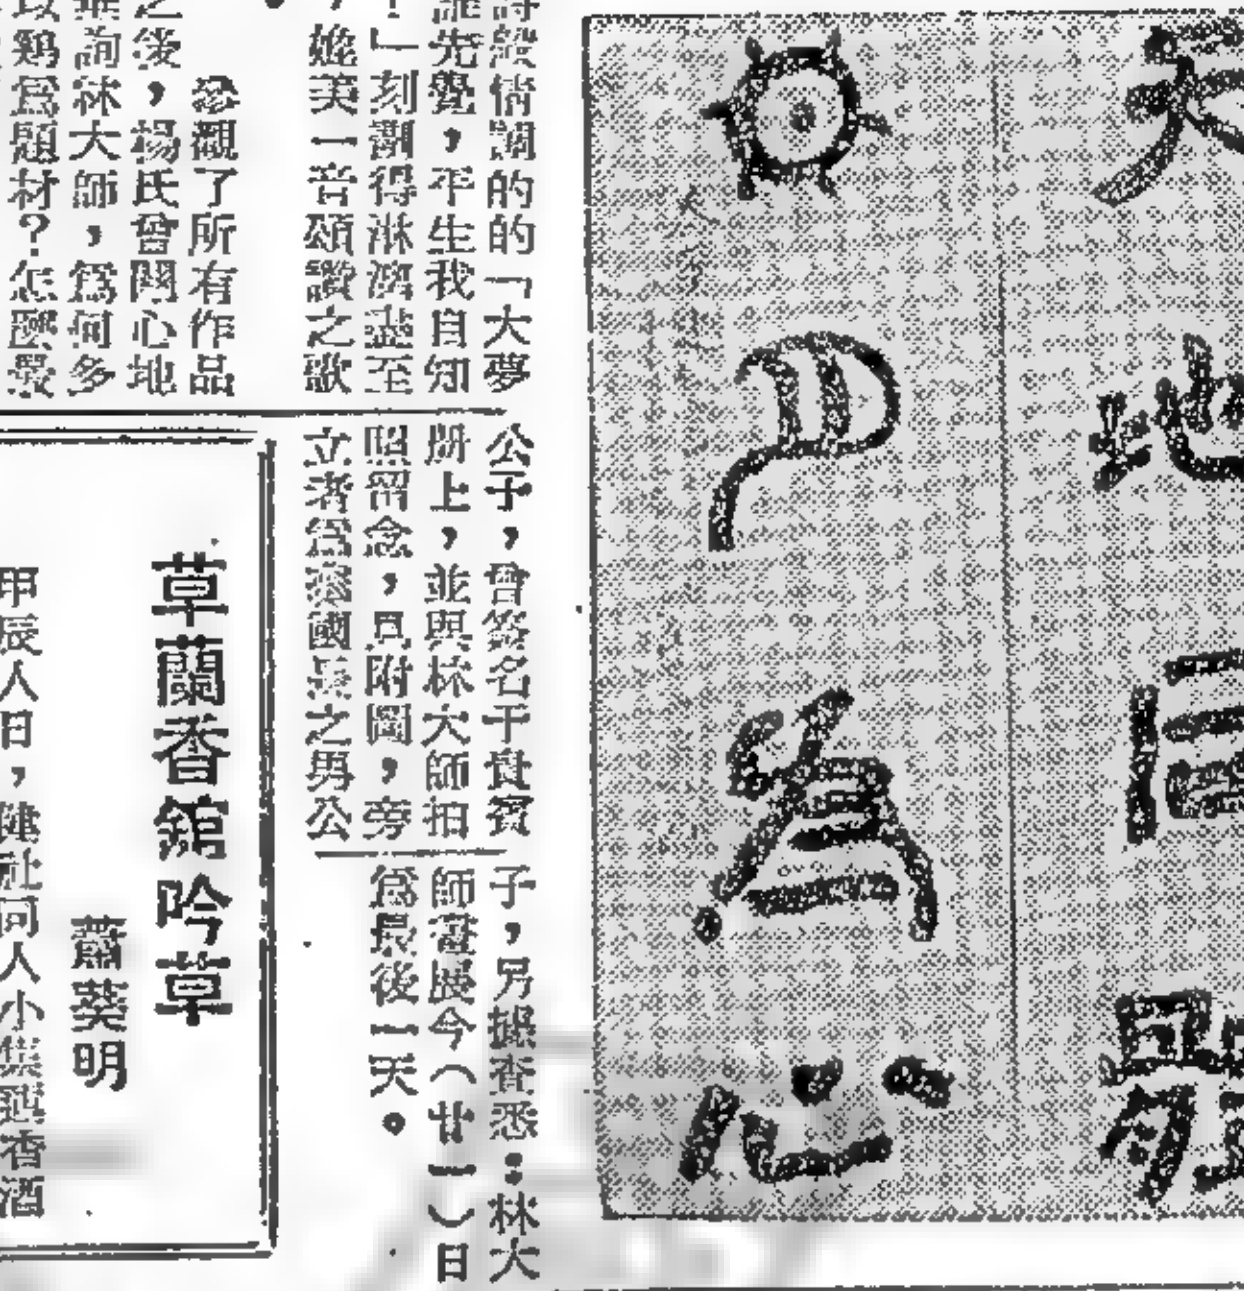 天地同㽞
日月為心
詩般情調的的「大夢
誰先覺，平生我自知
！」刻劃得淋漓盡至
，媲美一音頌讚之歌
。
參觀了所有作品
之後，楊氏曾關心地
詢林大師，爲何多
以鷄爲題材？怎麽最
公子，曾簽名于貴賓
册上，並與林大師拍
照留念，見附圖，旁
立者爲泰國王之男公
子，另據查悉：林大
師畫展今（廿一）日
爲最後一天。
草蘭香館吟草
蕭葵明
甲辰人日，健社同人小集
香酒